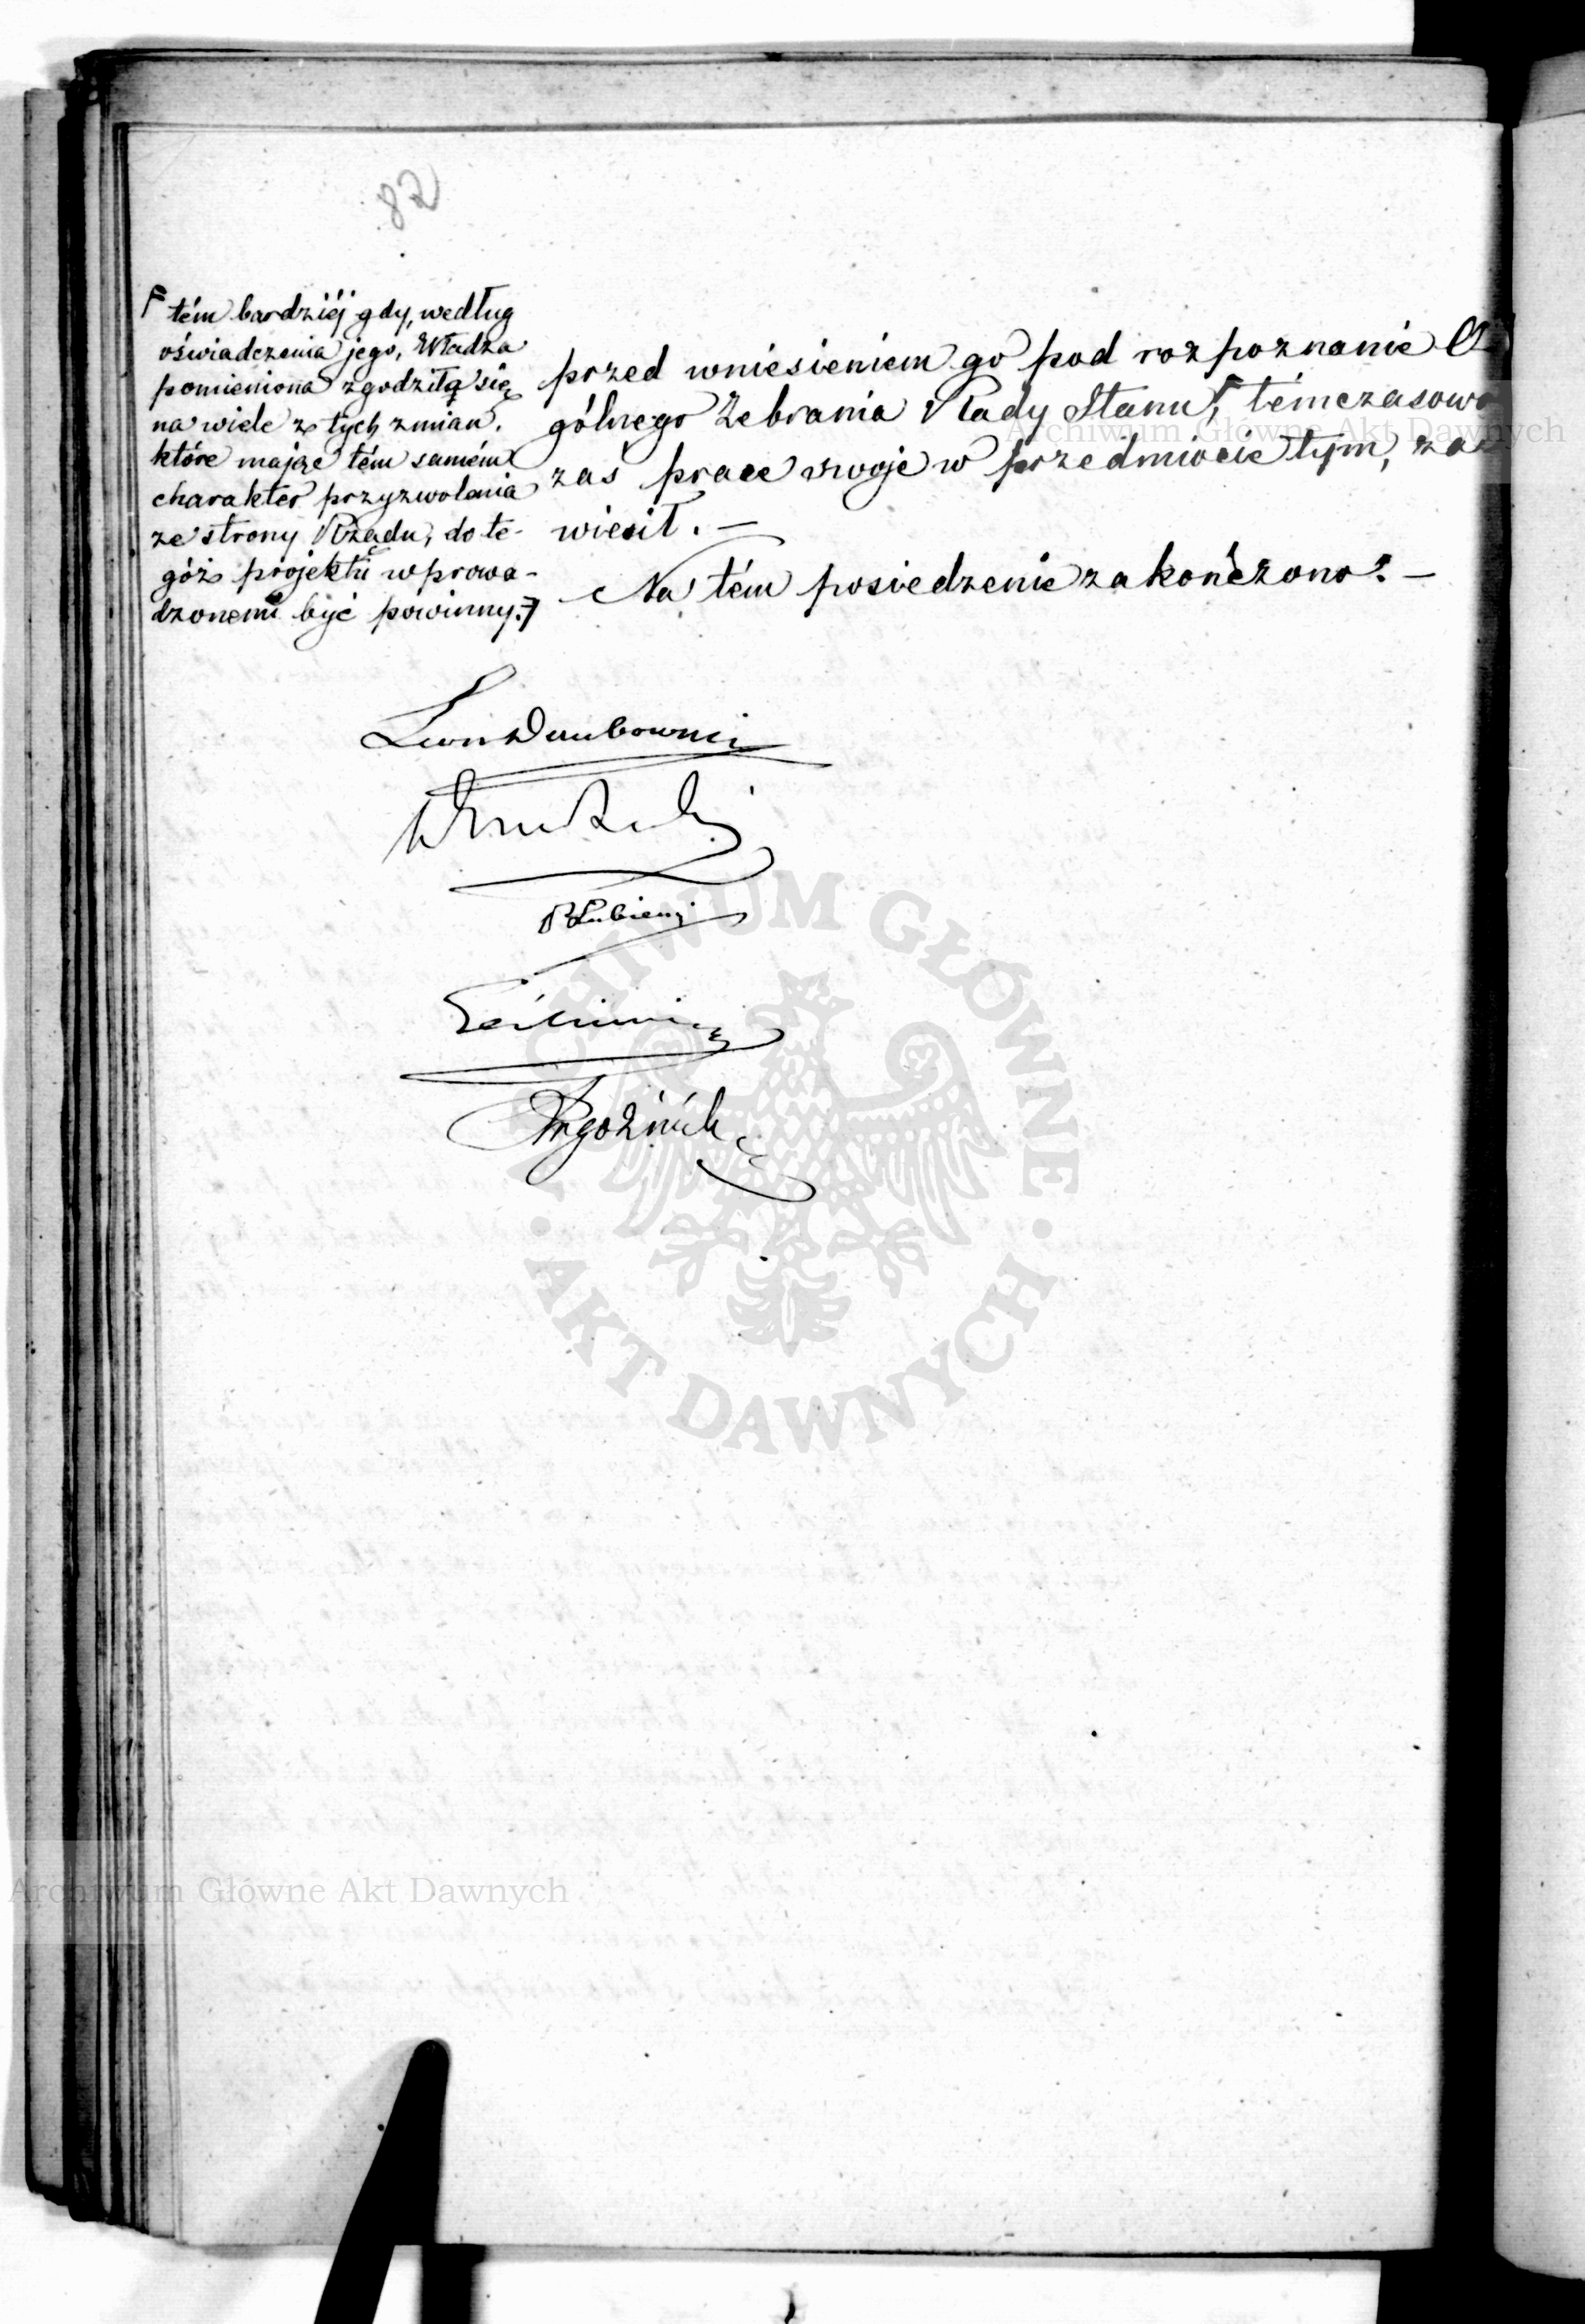 82
tém bardziéj gdy, według
oświadczenia jego, Władza
pomieniona zgodziła się
na wiele z tych zmian,
które mając tém samém
charakter przyzwolenia
ze strony Rządu, do te-
góż projektu wprowa-
dzonemi być powinny.
przed wniesieniem go pod rozpoznanie O-
gólnego Zebrania Rady Stanu, témczasowo
zaś prace swoje w przedmiocie tym, za-
wiesił. —
Na tém posiedzenie zakończono. —
Leon Dembowski
Łubieński
Archiwum Główne Akt Dawnych
ARCHIWUM GŁÓWNE
· AKT DAWNYCH ·
Archiwum Główne Akt Dawnych